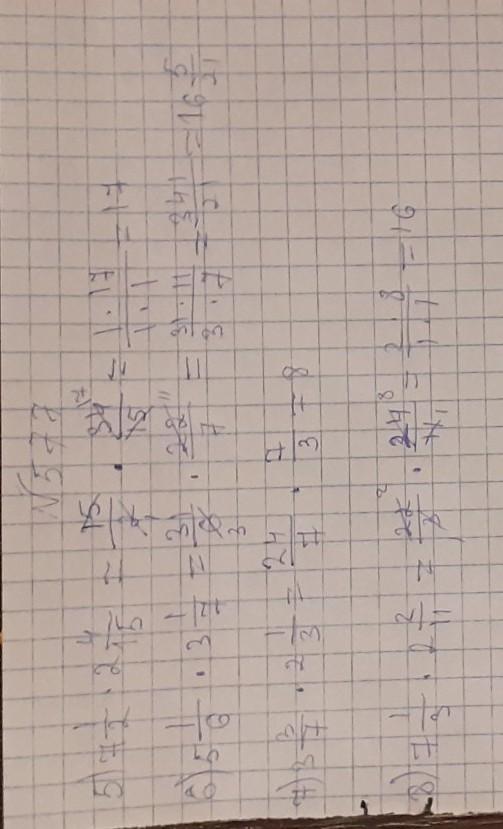 №577
5) 7 1/2 · 2 4/15 = 15/2 · 34/15 17 = 1·17/1·1 = 17
6) 5 1/6 · 3 1/7 = 31/6 3 · 22/7 11 = 31·11/3·7 = 341/21 = 16 5/21
7) 3 3/7 · 2 1/3 = 24/7 · 7/3 = 8
8) 7 1/3 · 2 2/11 = 22/3 2 1 · 24/11 8 1 = 2·8/1·1 = 16